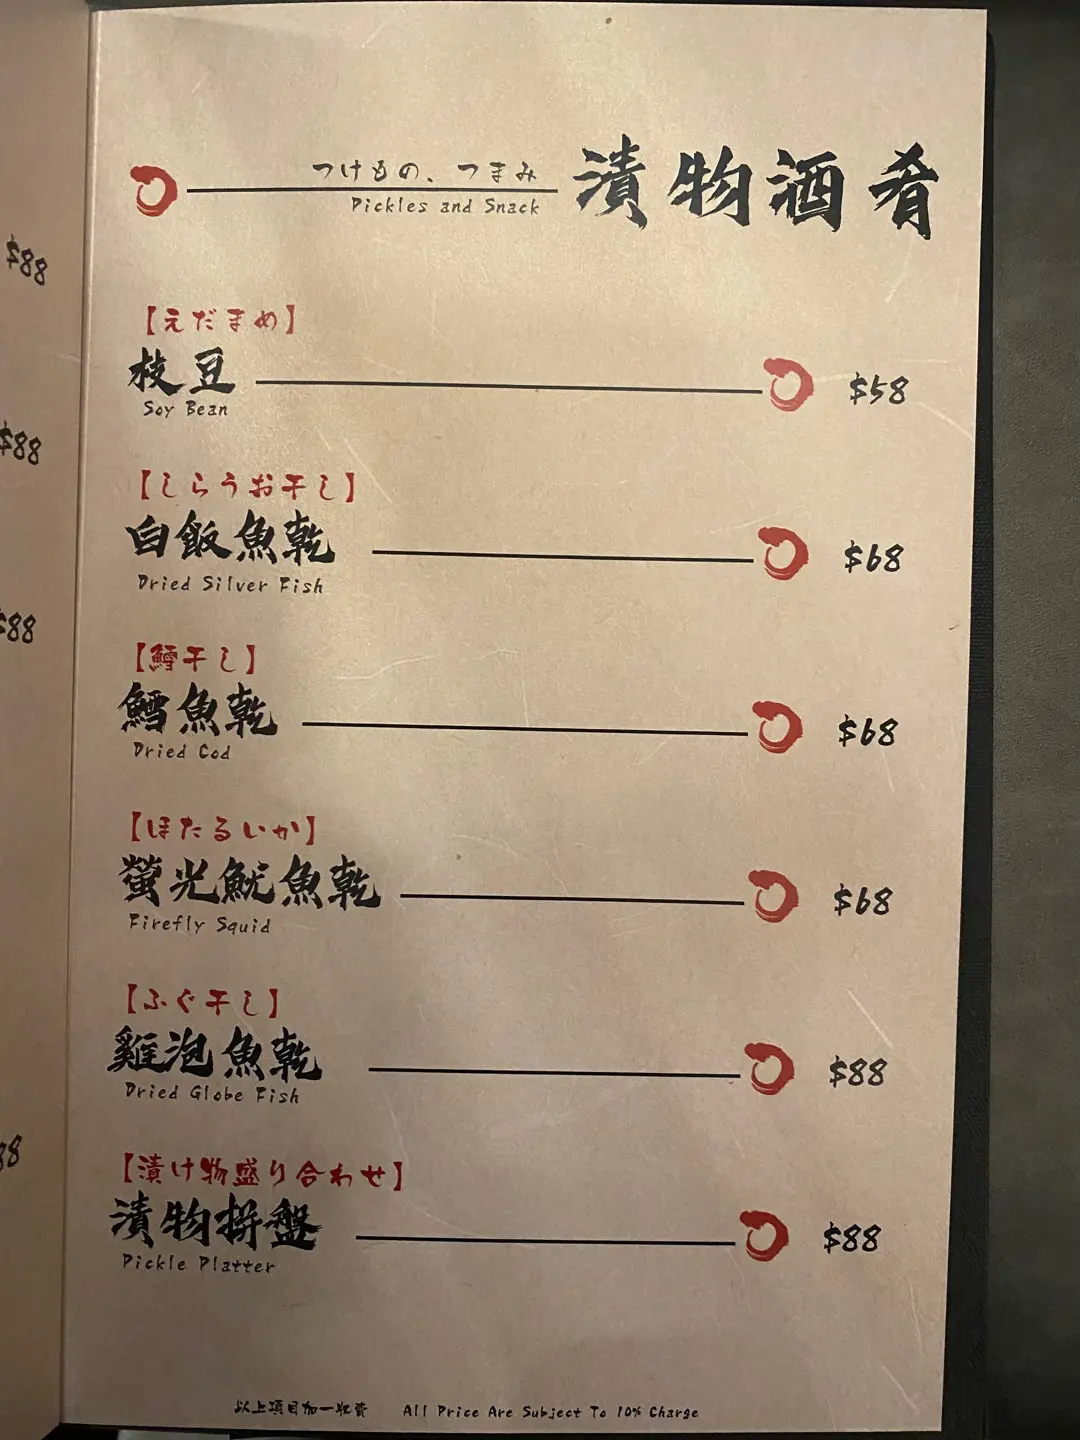 つけもの、つまみ
Pickles and Snack
漬物酒肴
【えだまめ】
枝豆
$58
Soy Bean
【しらうお干し】
白飯魚乾
$68
Dried Silver Fish
【鱈干し】
鱈魚乾
$68
Dried Cod
【ほたるいか】
螢光魷魚乾
$68
Firefly Squid
【ふぐ干し】
雞泡魚乾
$88
Dried Globe Fish
【漬け物盛り合わせ】
漬物拼盤
$88
Pickle Platter
以上項目加一收費 All Price Are Subject To 10% Charge
$88
$88
$88
88